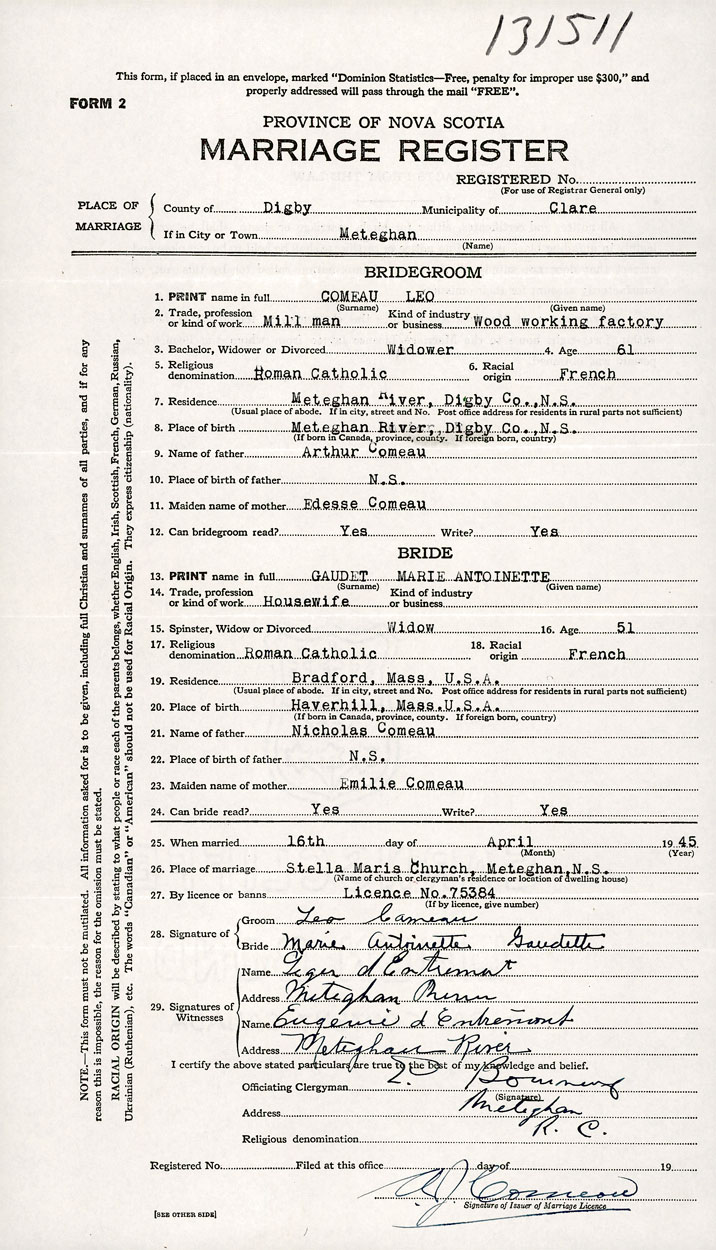 131511
This form, if placed in an envelope, marked "Dominion Statistics—Free, penalty for improper use $300," and
properly addressed will pass through the mail "FREE".
FORM 2
PROVINCE OF NOVA SCOTIA
MARRIAGE REGISTER
REGISTERED No.
(For use of Registrar General only)
PLACE OF MARRIAGE
County of Digby Municipality of Clare
If in City or Town Meteghan
(Name)
BRIDEGROOM
1. PRINT name in full COMEAU LEO
(Surname) (Given name)
2. Trade, profession or kind of work Mill man Kind of industry or business Wood working factory
3. Bachelor, Widower or Divorced Widower 4. Age 61
5. Religious denomination Roman Catholic 6. Racial origin French
7. Residence Meteghan River, Digby Co.,N.S.
(Usual place of abode. If in city, street and No. Post office address for residents in rural parts not sufficient)
8. Place of birth Meteghan River, Digby Co.,N.S.
(If born in Canada, province, county. If foreign born, country)
9. Name of father Arthur Comeau
10. Place of birth of father N.S.
11. Maiden name of mother Edesse Comeau
12. Can bridegroom read? Yes Write? Yes
BRIDE
13. PRINT name in full GAUDET MARIE ANTOINETTE
(Surname) (Given name)
14. Trade, profession or kind of work Housewife Kind of industry or business
15. Spinster, Widow or Divorced Widow 16. Age 51
17. Religious denomination Roman Catholic 18. Racial origin French
19. Residence Bradford, Mass, U.S.A.
(Usual place of abode. If in city, street and No. Post office address for residents in rural parts not sufficient)
20. Place of birth Haverhill, Mass.U.S.A.
(If born in Canada, province, county. If foreign born, country)
21. Name of father Nicholas Comeau
22. Place of birth of father N.S.
23. Maiden name of mother Emilie Comeau
24. Can bride read? Yes Write? Yes
25. When married 16th day of April 1945
(Month) (Year)
26. Place of marriage Stella Maris Church, Meteghan,N.S.
(Name of church or clergyman's residence or location of dwelling house)
27. By licence or banns Licence No.75384
(If by licence, give number)
28. Signature of
Groom Leo Comeau
Bride Marie Antoinette Gaudette
29. Signatures of Witnesses
Name Leger d'Entremont
Address Meteghan River
Name Eugenie d'Entremont
Address Meteghan River
I certify the above stated particulars are true to the best of my knowledge and belief.
Officiating Clergyman
(Signature)
Address Meteghan
Religious denomination R. C.
Registered No. Filed at this office day of 19
A J Comeau
Signature of Issuer of Marriage Licence
[SEE OTHER SIDE]
NOTE.—This form must not be mutilated. All information asked for is to be given, including full Christian and surnames of all parties, and if for any
reason this is impossible, the reason for the omission must be stated.
RACIAL ORIGIN will be described by stating to what people or race each of the parents belongs, whether English, Irish, Scottish, French, German, Russian,
Ukrainian (Ruthenian), etc. The words "Canadian" or "American" should not be used for Racial Origin. They express citizenship (nationality).